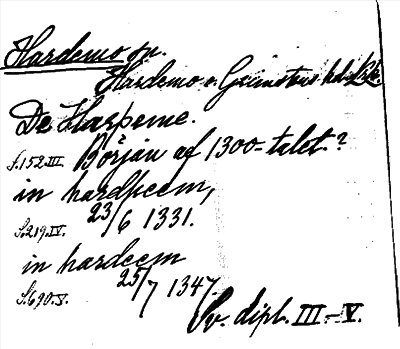 Hardemo sn.
Hardemo o. Grimstens hd. Lk.
De Harpeme.
S.152.III. Början af 1300-talet.?
in hardheem,
S.219.IV. 23/6 1331.
in hardeem
S.690.V. 25/7 1347.
Sv. dipl. III-V.